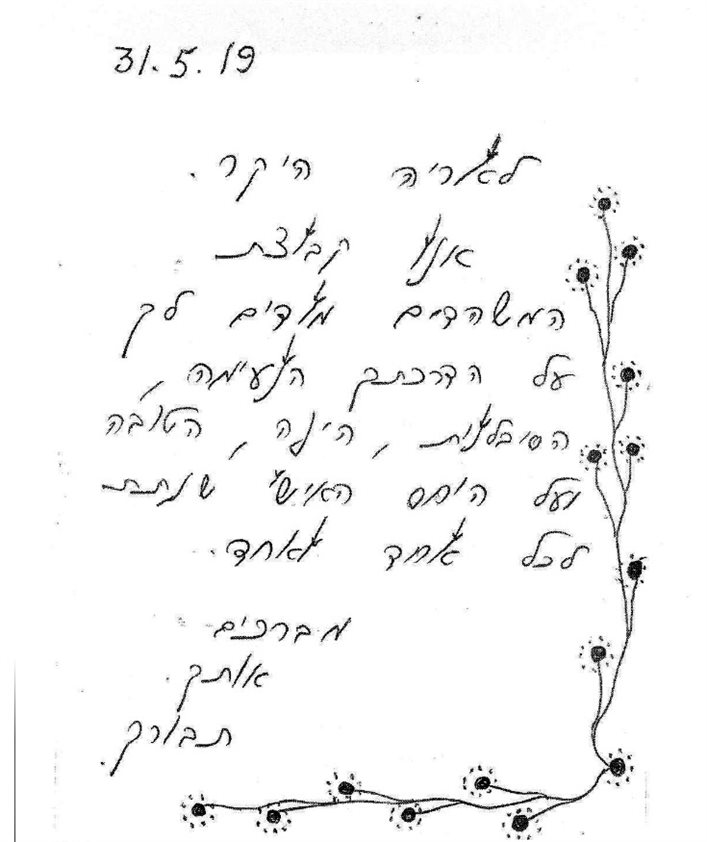 31.5.19
לאריה היקר.
אנו קבוצת
המשהדים מודים לך
על הדרכתך הנעימה,
הסובלנית, היפה, הטובה
ועל היחס האישי שנתת
לכל אחד ואחד.
מברכים
אותך
תבורך